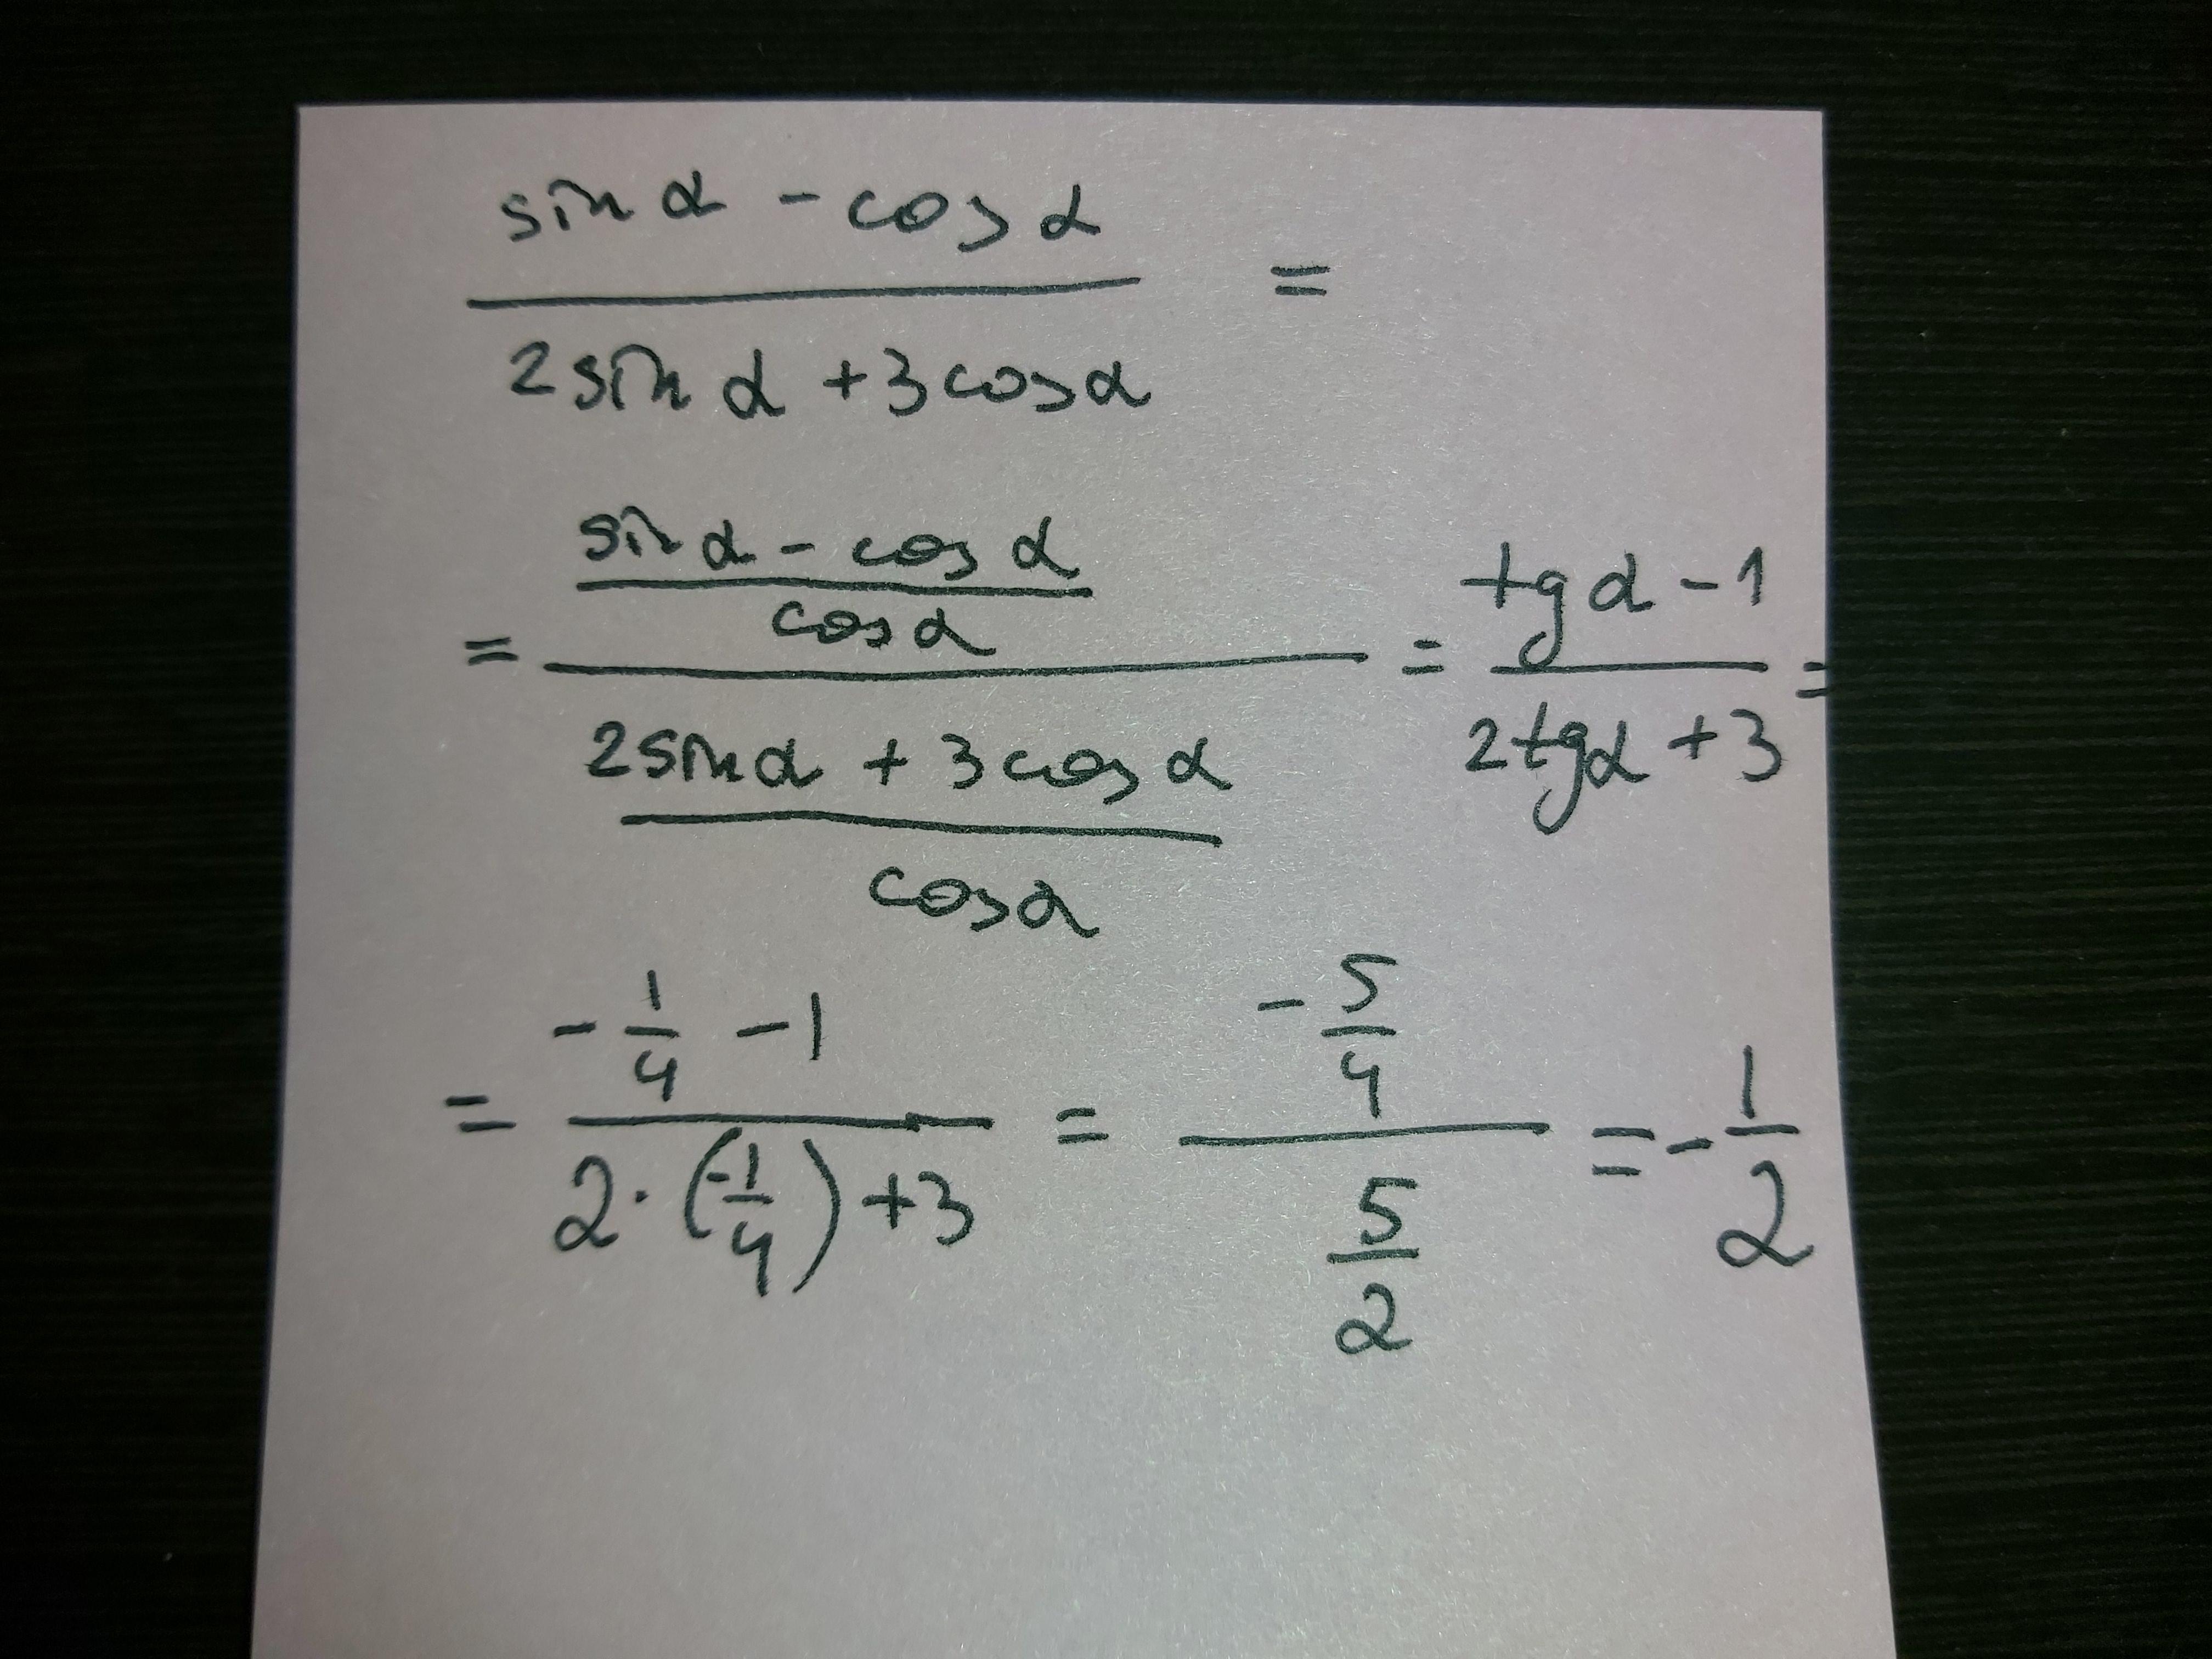 sin α - cos α / 2 sin α + 3 cos α =
= (sin α - cos α / cos α) / (2 sin α + 3 cos α / cos α) = tg α - 1 / 2 tg α + 3 =
= (- 1/4 - 1) / (2 · (-1/4) + 3) = (- 5/4) / (5/2) = - 1/2